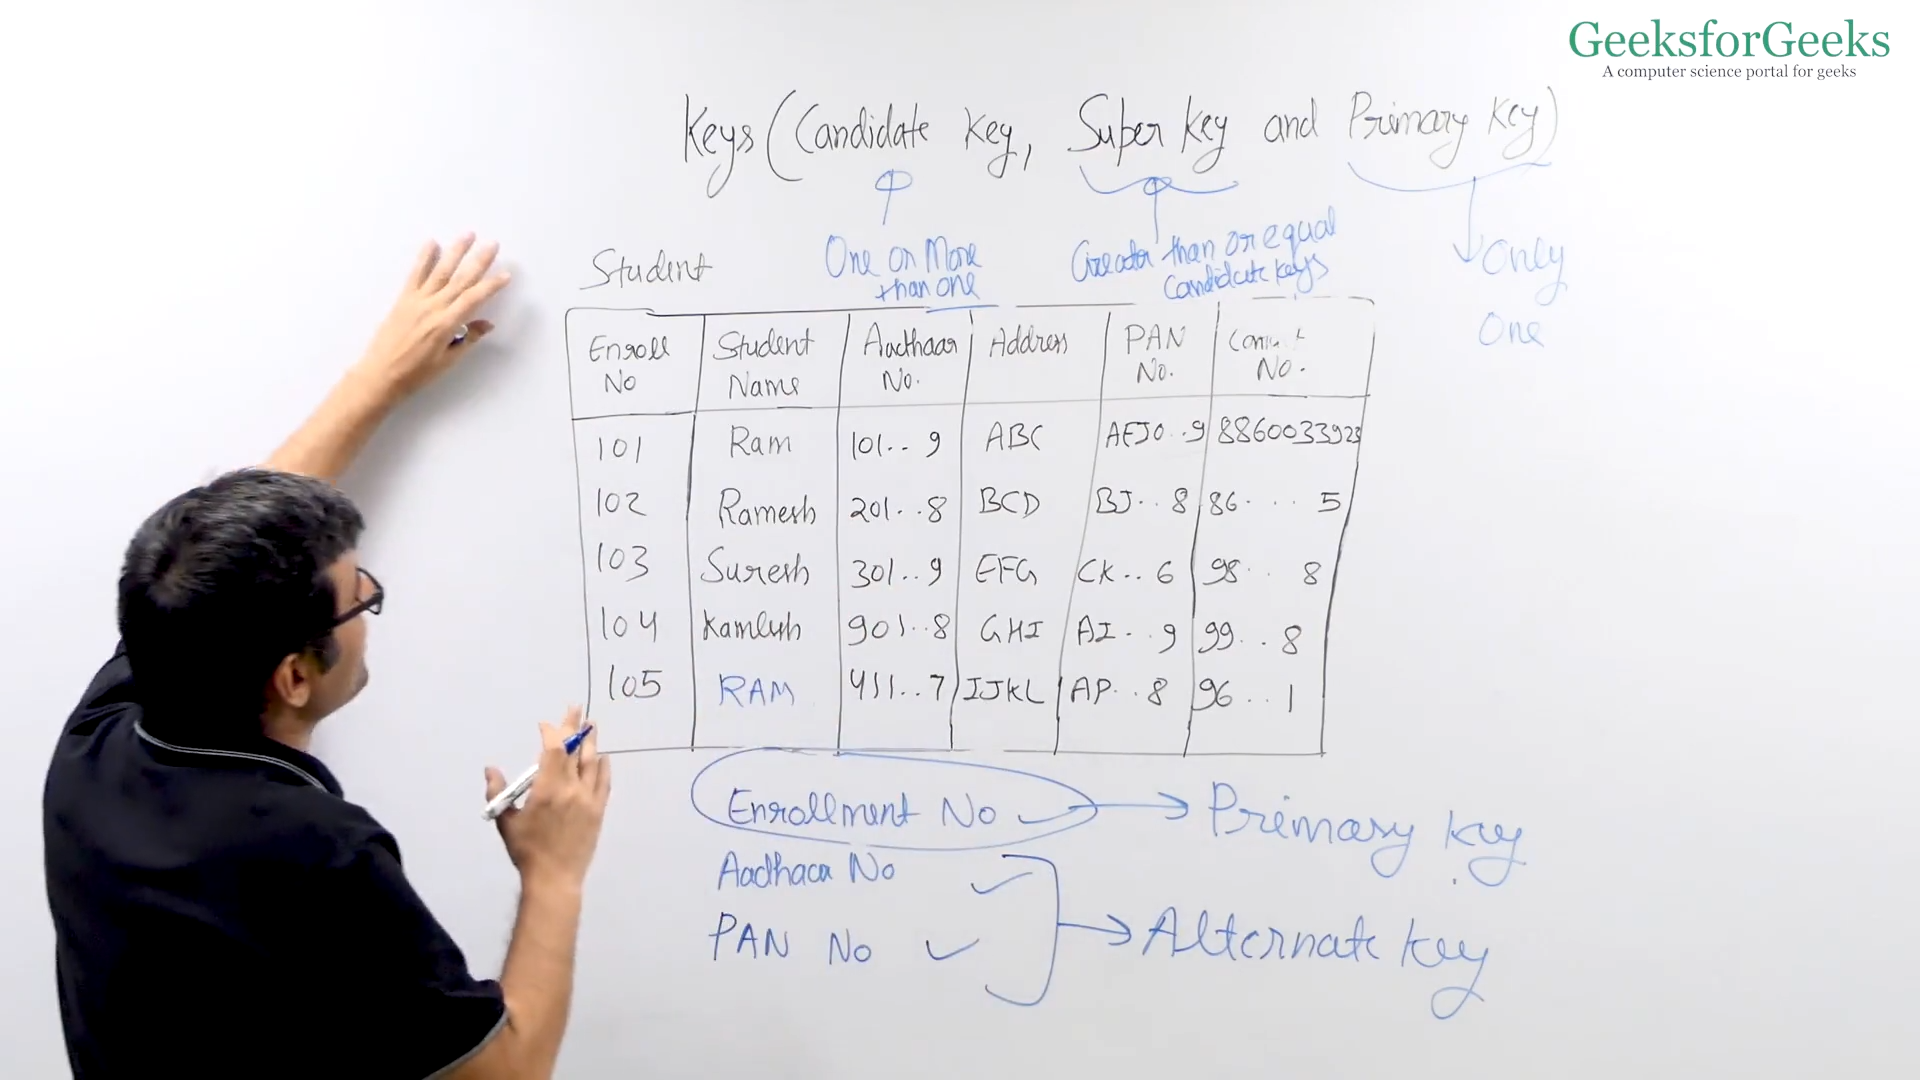 GeeksforGeeks
A computer science portal for geeks
Keys (Candidate Key, Super Key and Primary Key)
One or More
than one
Greater than or equal
Candidate Keys
Only
One
Student
Enroll No | Student Name | Aadhaar No. | Address | PAN No. | No.
101 Ram 101.. 9 ABC AEJ0..9 8860033923
102 Ramesh 201..8 BCD BJ..8 86.... 5
103 Suresh 301..9 EFG CK..6 98.. 8
104 Kamlesh 901..8 GHI AI..9 99...8
105 RAM 411..7 IJKL AP..8 96...1
Enrollment No → Primary Key
Aadhaar No
PAN No
→ Alternate Key